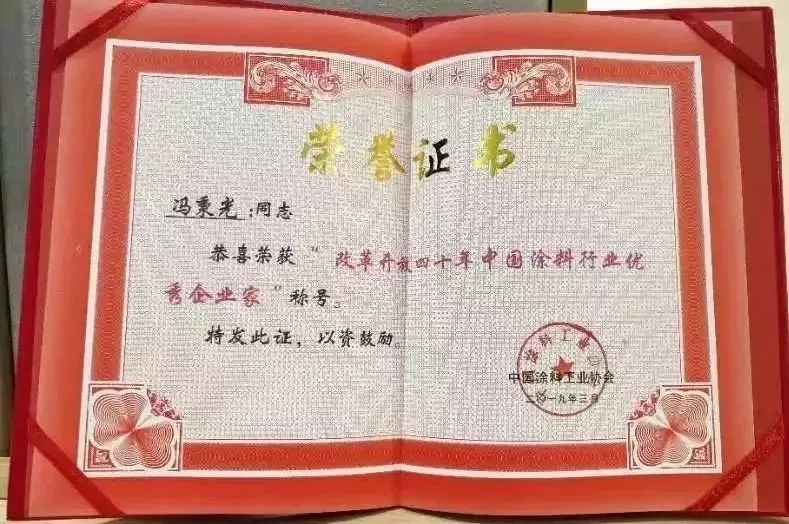 荣誉证书
冯秉光:同志
恭喜荣获"改革开放四十年中国涂料行业优
秀企业家"称号。
特发此证，以资鼓励。
涂料工业
中国涂料工业协会
二〇一九年三月